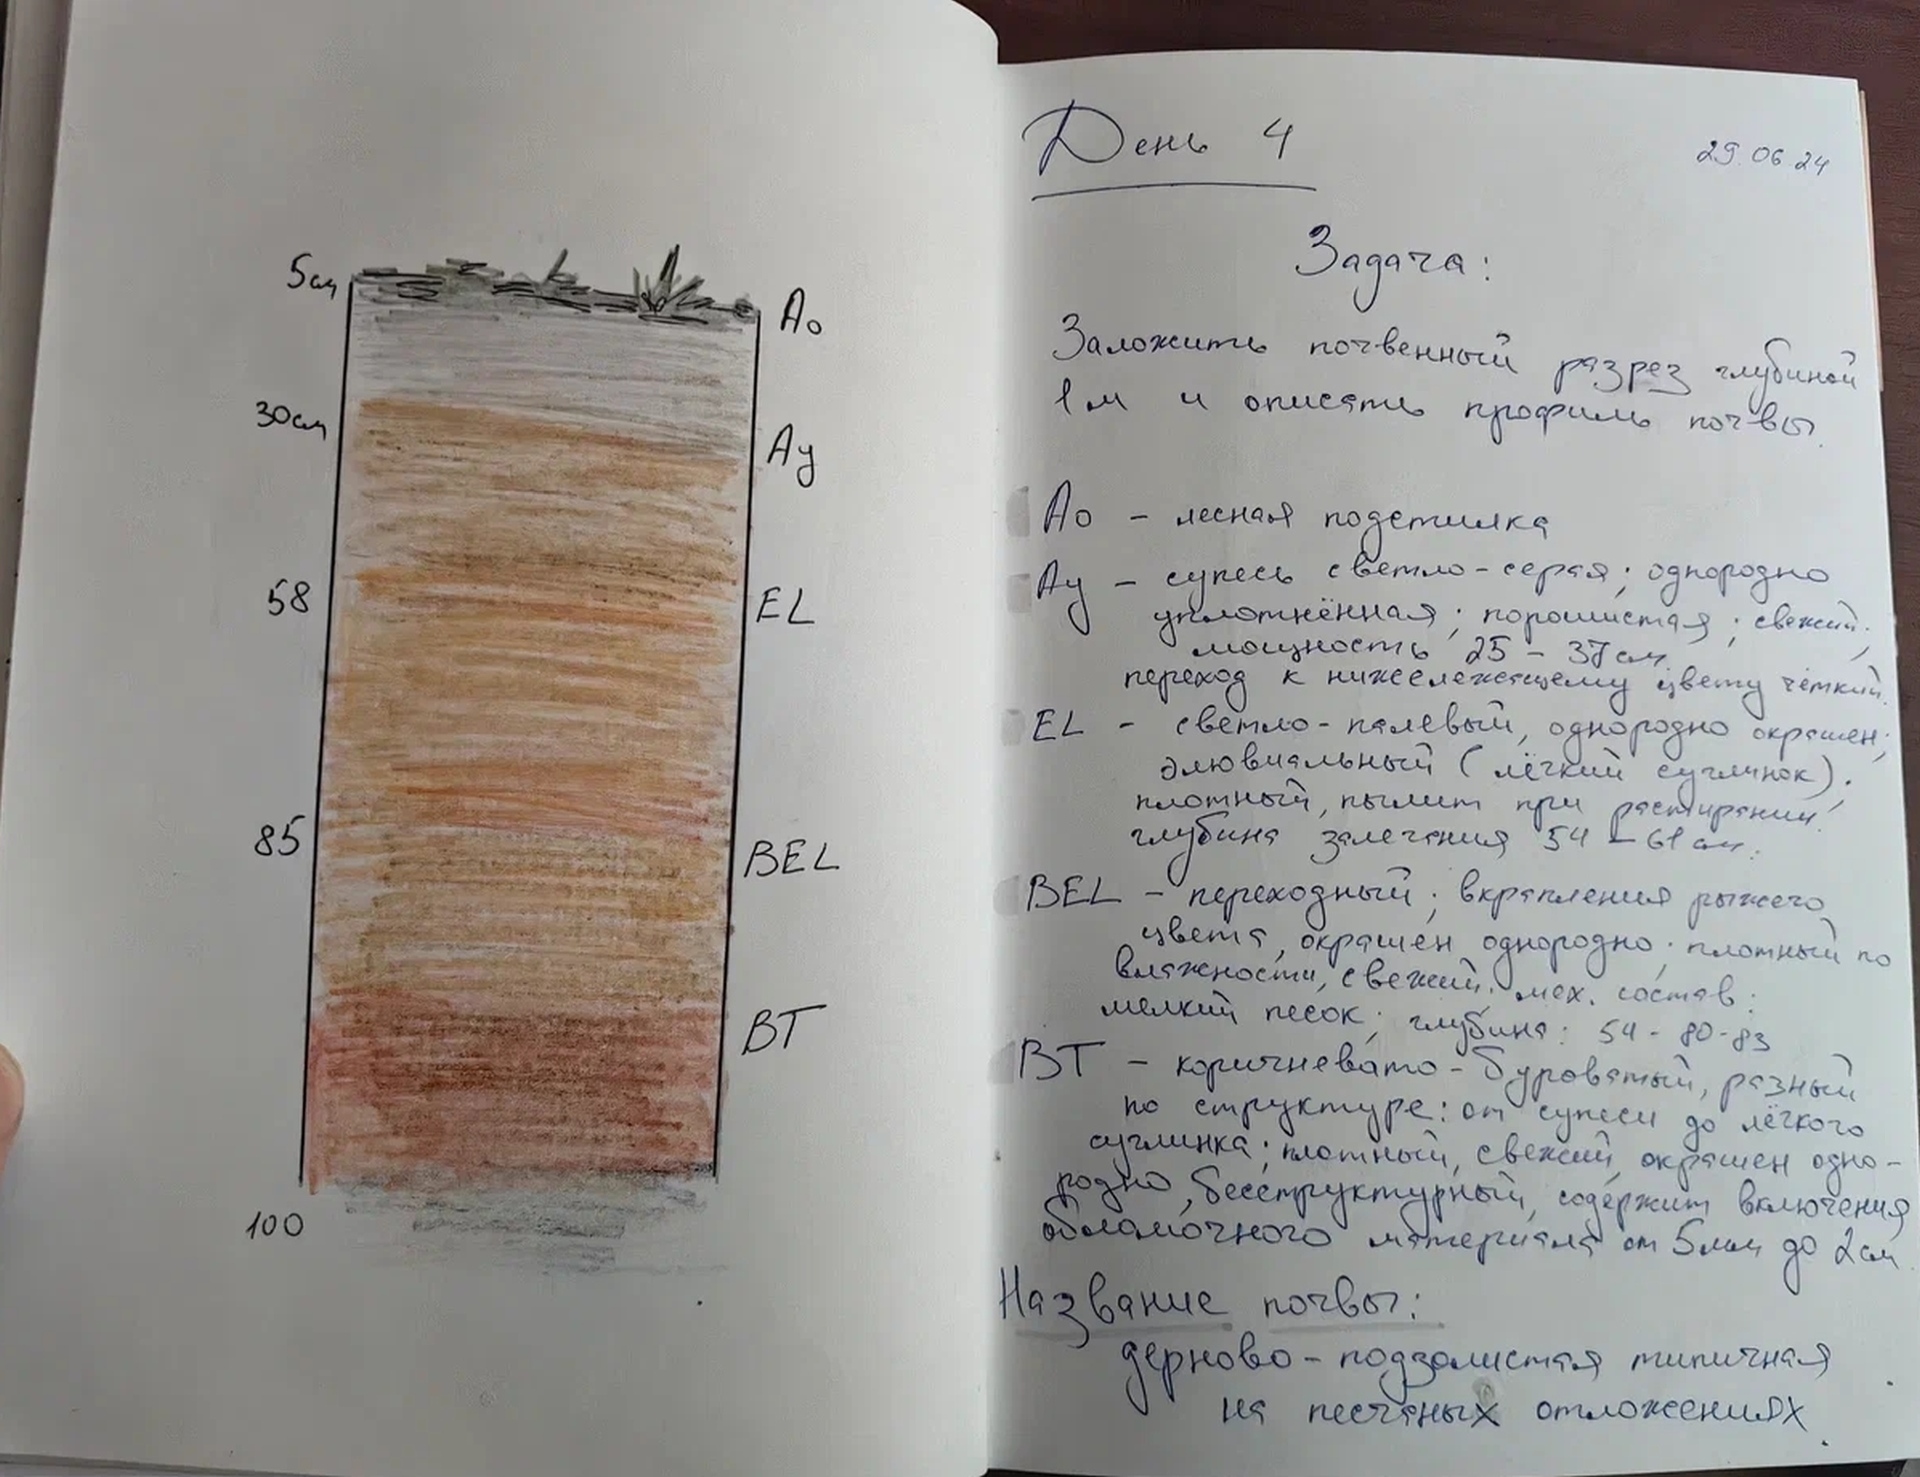 5см
Ао
30см
Ау
58
EL
85
BEL
BT
100
День 4
29.06.24
Задача:
Заложить почвенный разрез глубиной
1м и описать профиль почвы.
Ао - лесная подстилка
Ау - супесь светло-серая; однородно
уплотнённая; порошистая; свежий;
мощность 25 - 37см,
переход к нижележащему цвету чёткий.
EL - светло-палевый, однородно окрашен;
элювиальный (лёгкий суглинок);
плотный, пылит при растирании;
глубина залегания 54 - 61 см.
BEL - переходный; вкрапления рыжего
цвета, окрашен однородно; плотный по
влажности, свежий. мех. состав:
мелкий песок; глубина: 54 - 80-83
BT - коричневато-буроватый, разный
по структуре: от супеси до лёгкого
суглинка; плотный, свежий, окрашен одно-
родно, бесструктурный, содержит включения
обломочного материала от 5мм до 2см.
Название почвы:
дерново-подзолистая типичная
на песчаных отложениях